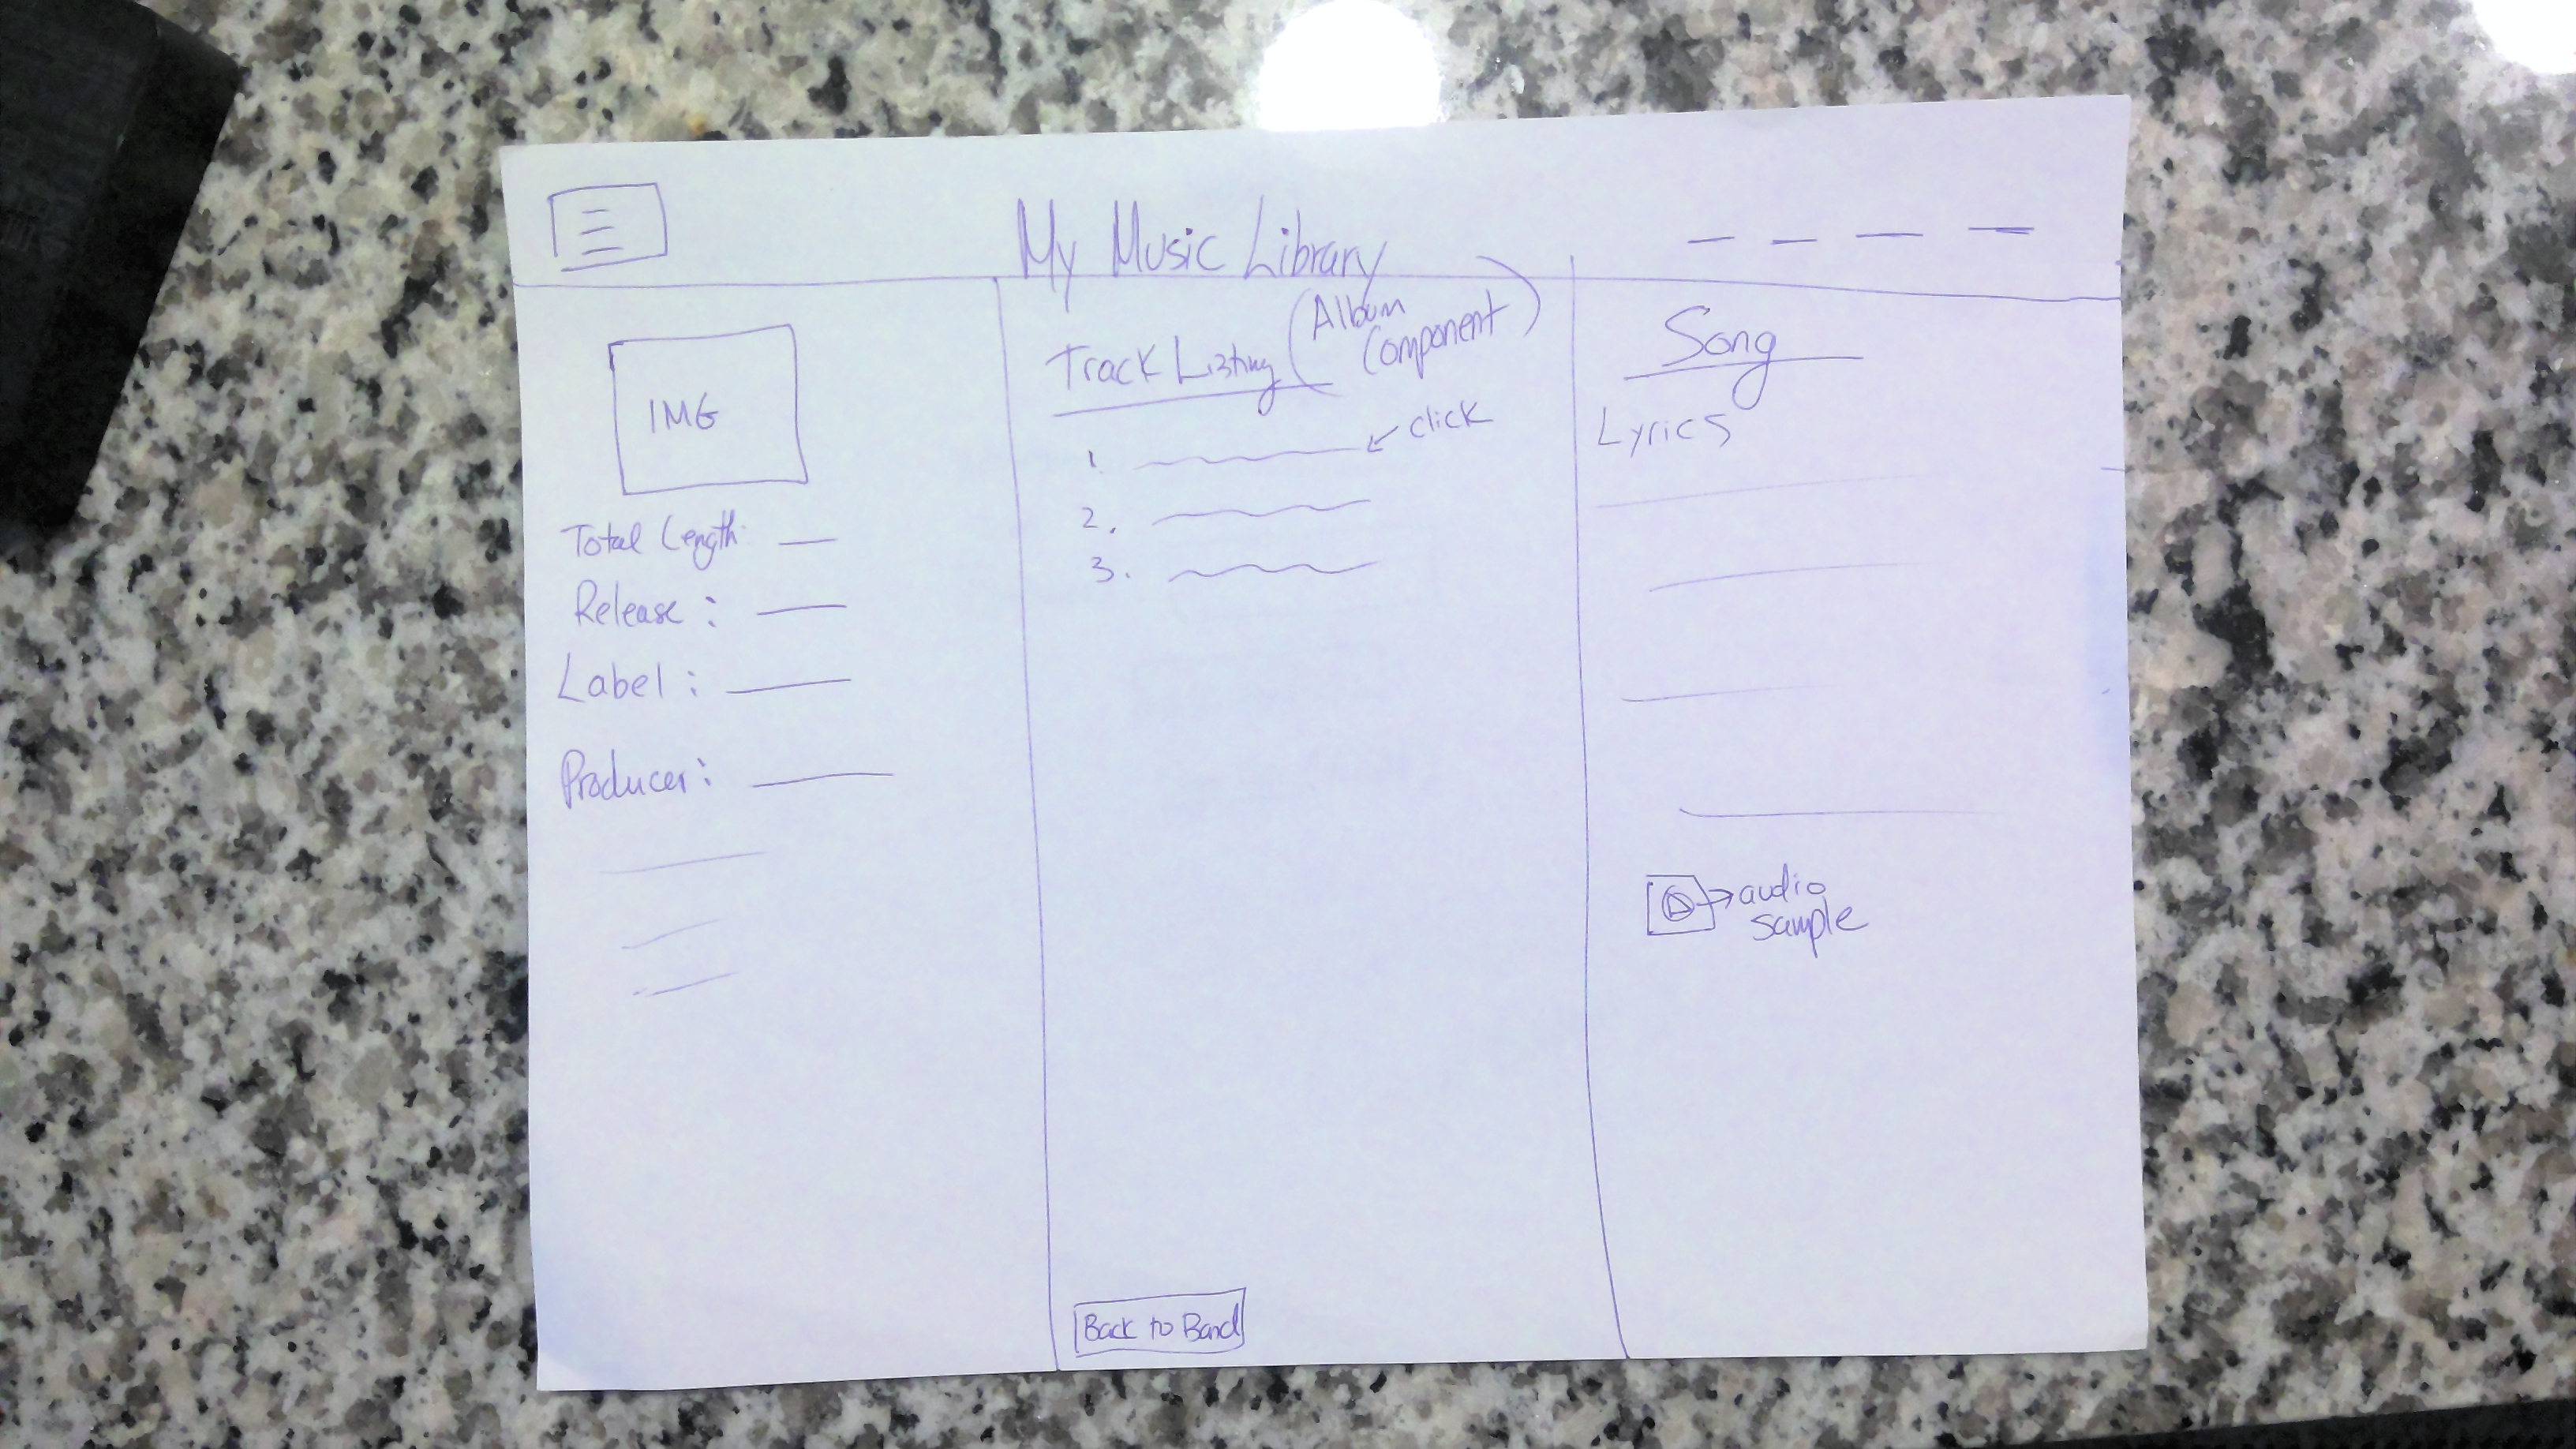 My Music Library
IMG
Total Length
Release :
Label :
Producer :
Track Listing
(Album
Component)
1.
click
2.
3.
Back to Band
Song
Lyrics
audio
sample